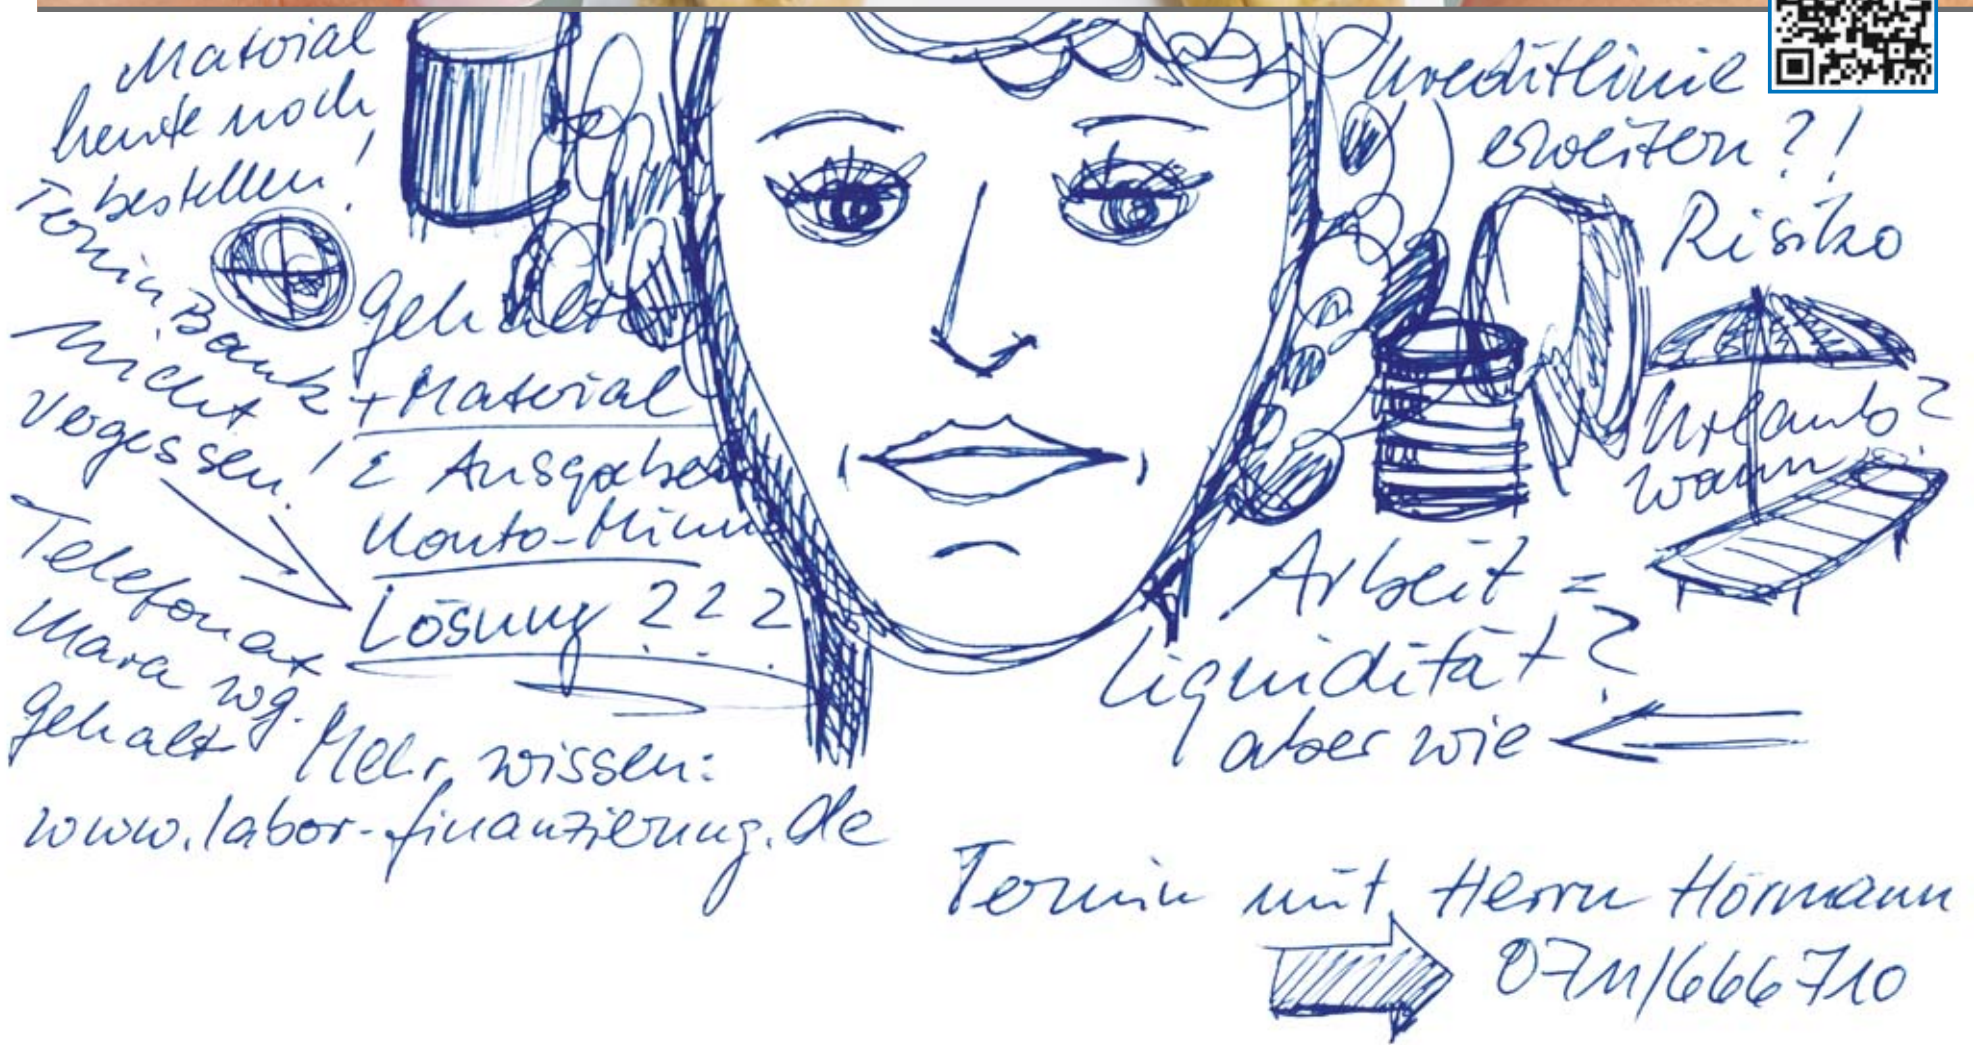 Material
heute noch
bestellen!
Termin Bank
nicht
vergessen!
Gehälter
+ Material
Σ Ausgaben
Konto-Minus
Lösung ???
Telefonat
Mara wg.
Gehalt
Mehr wissen:
www.labor-finanzierung.de
Kreditlinie
erweitern?!
Risiko
Urlaub?
wann?
Arbeit =
Liquidität?
aber wie
Termin mit Herrn Hörmann
0711/666710